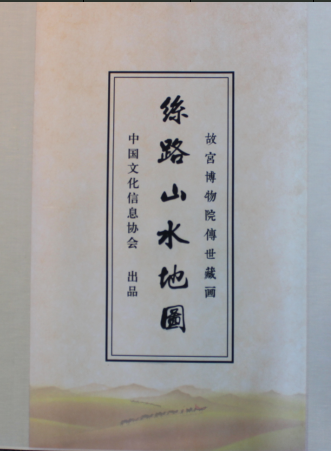 故宫博物院傳世藏画
絲路山水地圖
中国文化信息协会 出品